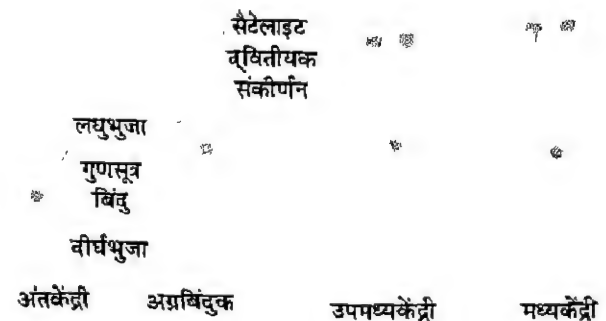 सैटेलाइट
द्वितीयक
संकीर्णन
लघुभुजा
गुणसूत्र
बिंदु
दीर्घभुजा
अंतकेंद्री अग्रबिंदुक उपमध्यकेंद्री मध्यकेंद्री